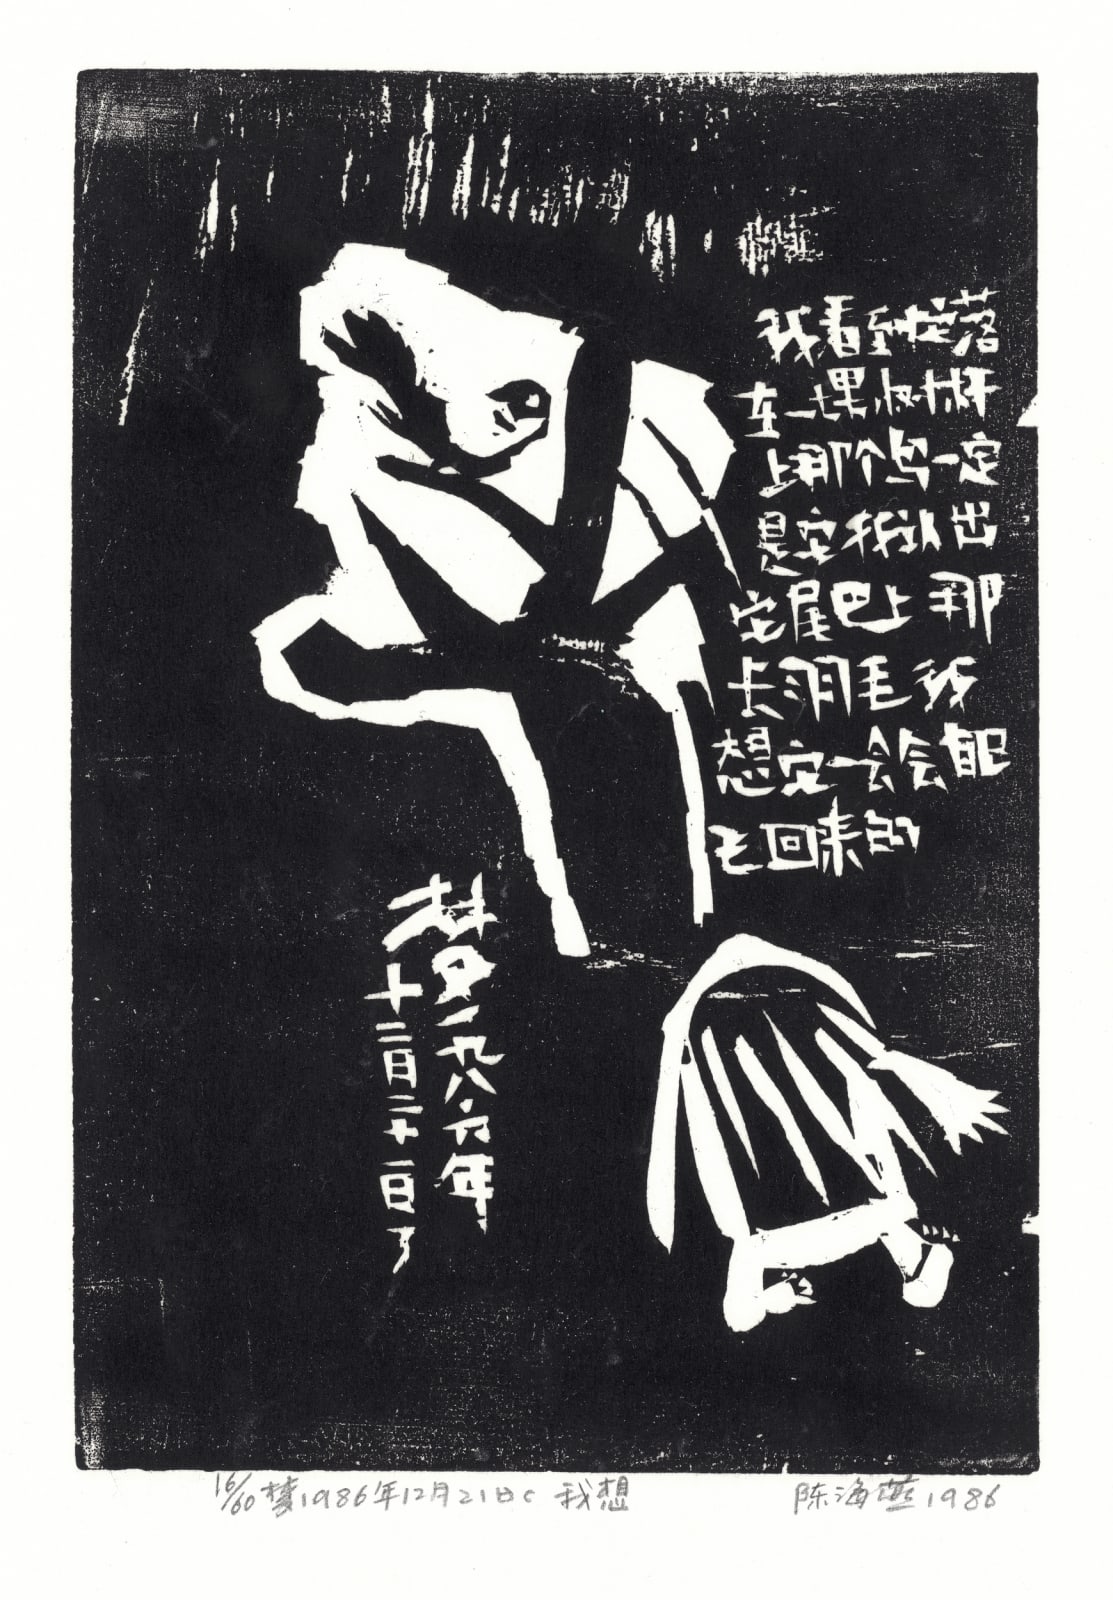 我看到它落
在一棵树杆
上那个鸟一定
是它我认出
它尾巴上那
长羽毛我
想它一会会能
飞回来的
梦一九八六年
十二月二十一日
16/60 梦1986年12月21日c 我想 陈海燕1986